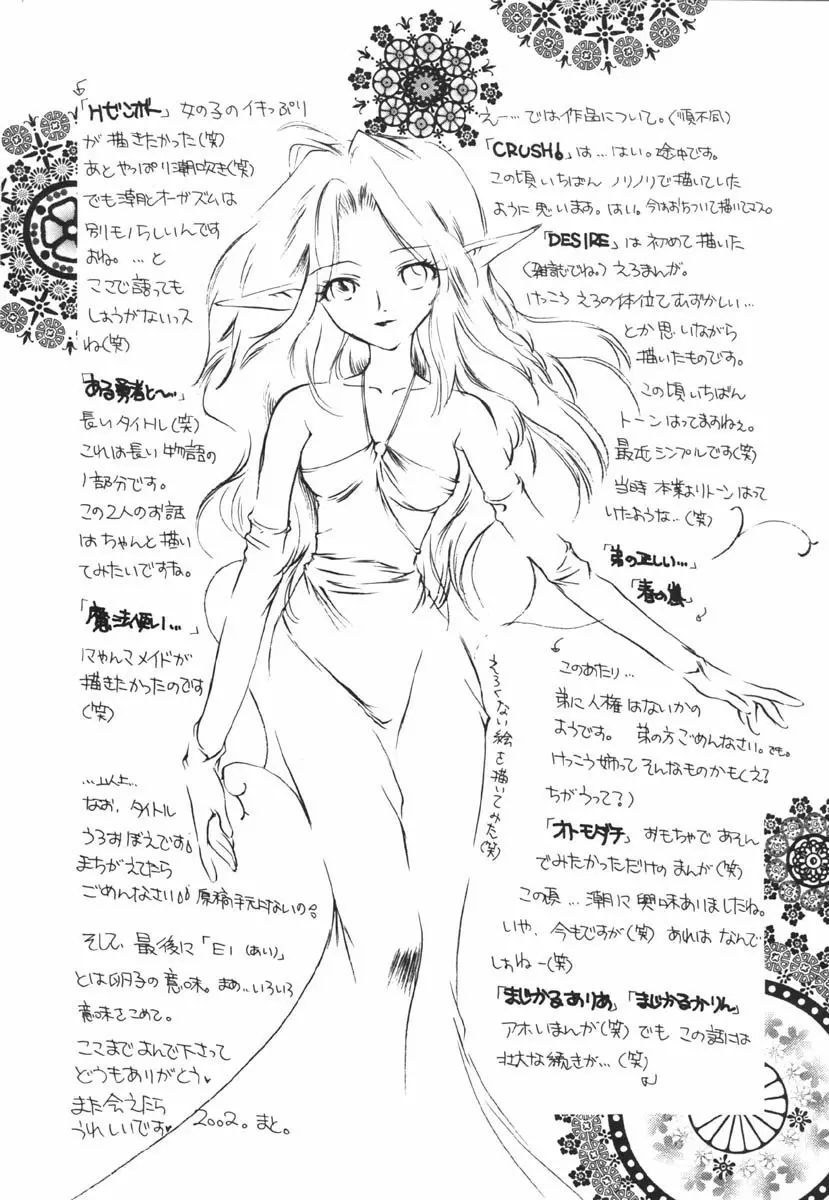 えー…では作品について。(順不同)
「CRUSH!」は…はい。途中です。
この頃いちばん ノリノリで描いていた
ように思います。はい。今はおちついて描いてマス。
「DESIRE」は初めて描いた
(雑誌でね。)えろまんが。
けっこう えろの体位てむずかしい…
とか思いながら
描いたものです。
この頃いちばん
トーンはってますねぇ。
最近シンプルです(笑)
当時 本業よりトーンはって
いたような…(笑)
「弟の正しい…」
「春の嵐」
このあたり…
弟に人権はないかの
ようです。 弟の方ごめんなさい。でも。
けっこう姉ってそんなものかもよ?え?
ちがうって?)
「オトモダチ」おもちゃであそん
でみたかっただけのまんが(笑)
この頃…潮に興味ありましたね。
いや、今もですが(笑) あれは なんで
しょねー(笑)
「まじかるありあ」「まじかるかりん」
アホいまんが(笑) でも この話には
壮大な続きが…(笑)
「Hゼンボー」女の子のイキっぷり
が描きたかった(笑)
あとやっぱり潮吹き(笑)
でも潮とオーガズムは
別モノらしいんです
よね。…と
ココで語っても
しょうがないっス
ね(笑)
「ある勇者と〜…」
長いタイトル(笑)
これは長い物語の
1部分です。
この2人のお話
はちゃんと描い
てみたいですね。
「魔法使い…」
にゃんこメイドが
描きたかったのです
(笑)
…以上…
なお、タイトル
うろおぼえです。
まちがえてたら
ごめんなさい。原稿手元にないの。
そして、最後に「EI(あい)」
とは卵子の意味。まぁ…いろいろ
意味をこめて。
ここまでよんで下さって
どうもありがとう♥
また会えたら
うれしいです♥ 2002。まと。
えろくない絵を描いてみた(笑)